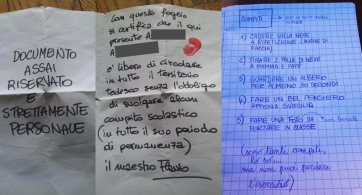 DOCUMENTO
ASSAI
RISERVATO
E
STRETTAMENTE
PERSONALE
Con questo foglio
si certifica che il qui
presente A
A
è libero di circolare
in tutto il territorio
tedesco senza l'obbligo
di svolgere alcun
compito scolastico
(in tutto il suo periodo
di permanenza)
il maestro
COMPITI
1) CADERE SULLA NEVE
A RIPETIZIONE (ANCHE DI
FACCIA)
2) TIRARE 2 PALLE DI NEVE
A MAMMA E PAPI
3) GUARDARE UN ALBERO
PER ALMENO 30 SECONDI
4) FARE UN BEL PENSIERINO
APPENA SVEGLIA
5) FARE UNA FOTO DA
PORTARE IN CLASSE
(sono tante compiti,
lo so...
ma non puoi perdere
l'esercizio)